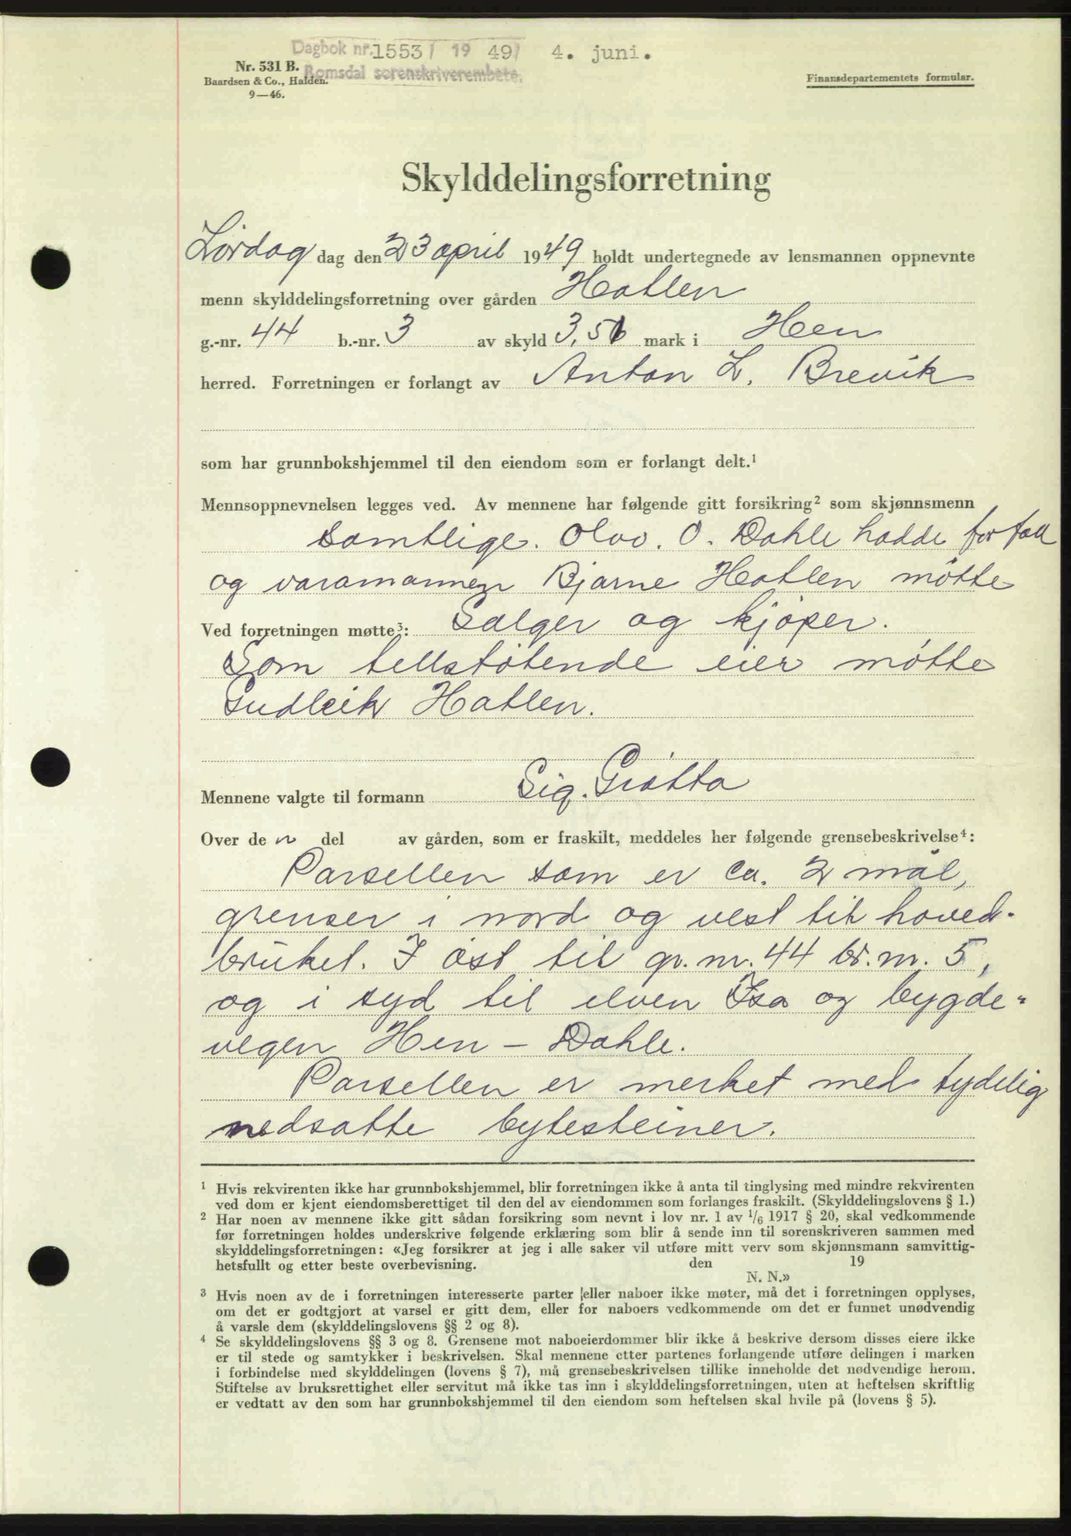 Dagbok nr. 1553/ 19 49/ 4. juni.
Romsdal sorenskriverembete.
Nr. 531 B.
Baardsen & Co., Halden.
9—46.
Finansdepartementets formular.
Skylddelingsforretning
Lördag dag den 23 april 1949 holdt undertegnede av lensmannen oppnevnte
menn skylddelingsforretning over gården Hatlen
g.-nr. 44 b.-nr. 3 av skyld 3,51 mark i Hen
herred. Forretningen er forlangt av Anton L. Brevik
som har grunnbokshjemmel til den eiendom som er forlangt delt.¹
Mennsoppnevnelsen legges ved. Av mennene har følgende gitt forsikring² som skjønnsmenn
samtlige. Olav. O. Dahle hadde forfall
og varamannen Bjarne Hatlen mötte
Ved forretningen møtte³: Selger og kjöper.
Som tilstötende eier mötte
Gudleik Hatlen.
Mennene valgte til formann Sig. Grötta
Over de n del av gården, som er fraskilt, meddeles her følgende grensebeskrivelse⁴:
Parsellen som er ca. 2 mål,
grenser i nord og vest til hoved-
bruket. I öst til gr. nr. 44 br. nr. 5,
og i syd til elven Isa og bygde-
vegen Hen – Dahle.
Parsellen er merket med tydelig
nedsatte bytesteiner.
¹ Hvis rekvirenten ikke har grunnbokshjemmel, blir forretningen ikke å anta til tinglysing med mindre rekvirenten
ved dom er kjent eiendomsberettiget til den del av eiendommen som forlanges fraskilt. (Skylddelingslovens § 1.)
² Har noen av mennene ikke gitt sådan forsikring som nevnt i lov nr. 1 av ¹/₆ 1917 § 20, skal vedkommende
før forretningen holdes underskrive følgende erklæring som blir å sende inn til sorenskriveren sammen med
skylddelingsforretningen: «Jeg forsikrer at jeg i alle saker vil utføre mitt verv som skjønnsmann samvittig-
hetsfullt og etter beste overbevisning. den 19
N. N.»
³ Hvis noen av de i forretningen interesserte parter eller naboer ikke møter, må det i forretningen opplyses,
om det er godtgjort at varsel er gitt dem, eller for naboers vedkommende om det er funnet unødvendig
å varsle dem (skylddelingslovens §§ 2 og 8).
⁴ Se skylddelingslovens §§ 3 og 8. Grensene mot naboeierdommer blir ikke å beskrive dersom disses eiere ikke
er til stede og samtykker i beskrivelsen. Skal mennene etter partenes forlangende utføre delingen i marken
i forbindelse med skylddelingen (lovens § 7), må grensebeskrivelsen tillike inneholde det nødvendige herom.
Stiftelse av bruksrettighet eller servitut må ikke tas inn i skylddelingsforretningen, uten at heftelsen skriftlig
er vedtatt av den som har grunnbokshjemmel til den eiendom som heftelsen skal hvile på (lovens § 5).